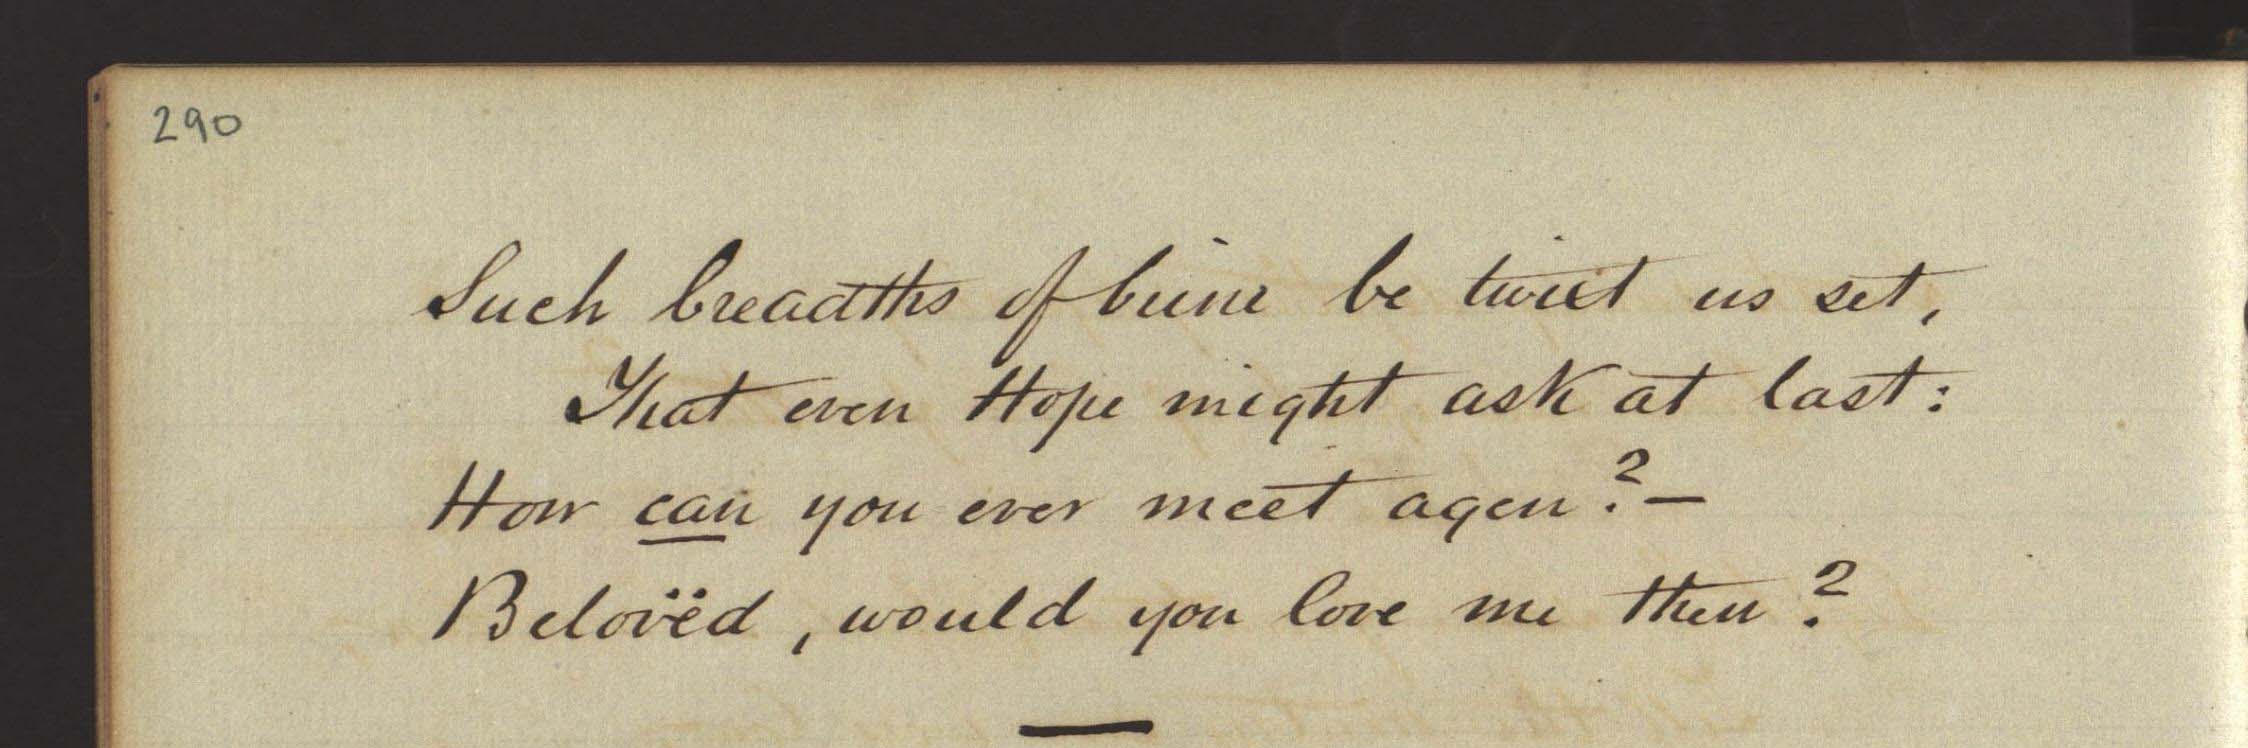 290
Such breadths of brine be twixt us set,
That even Hope might ask at last:
How can you ever meet agen? —
Belovëd, would you love me then?